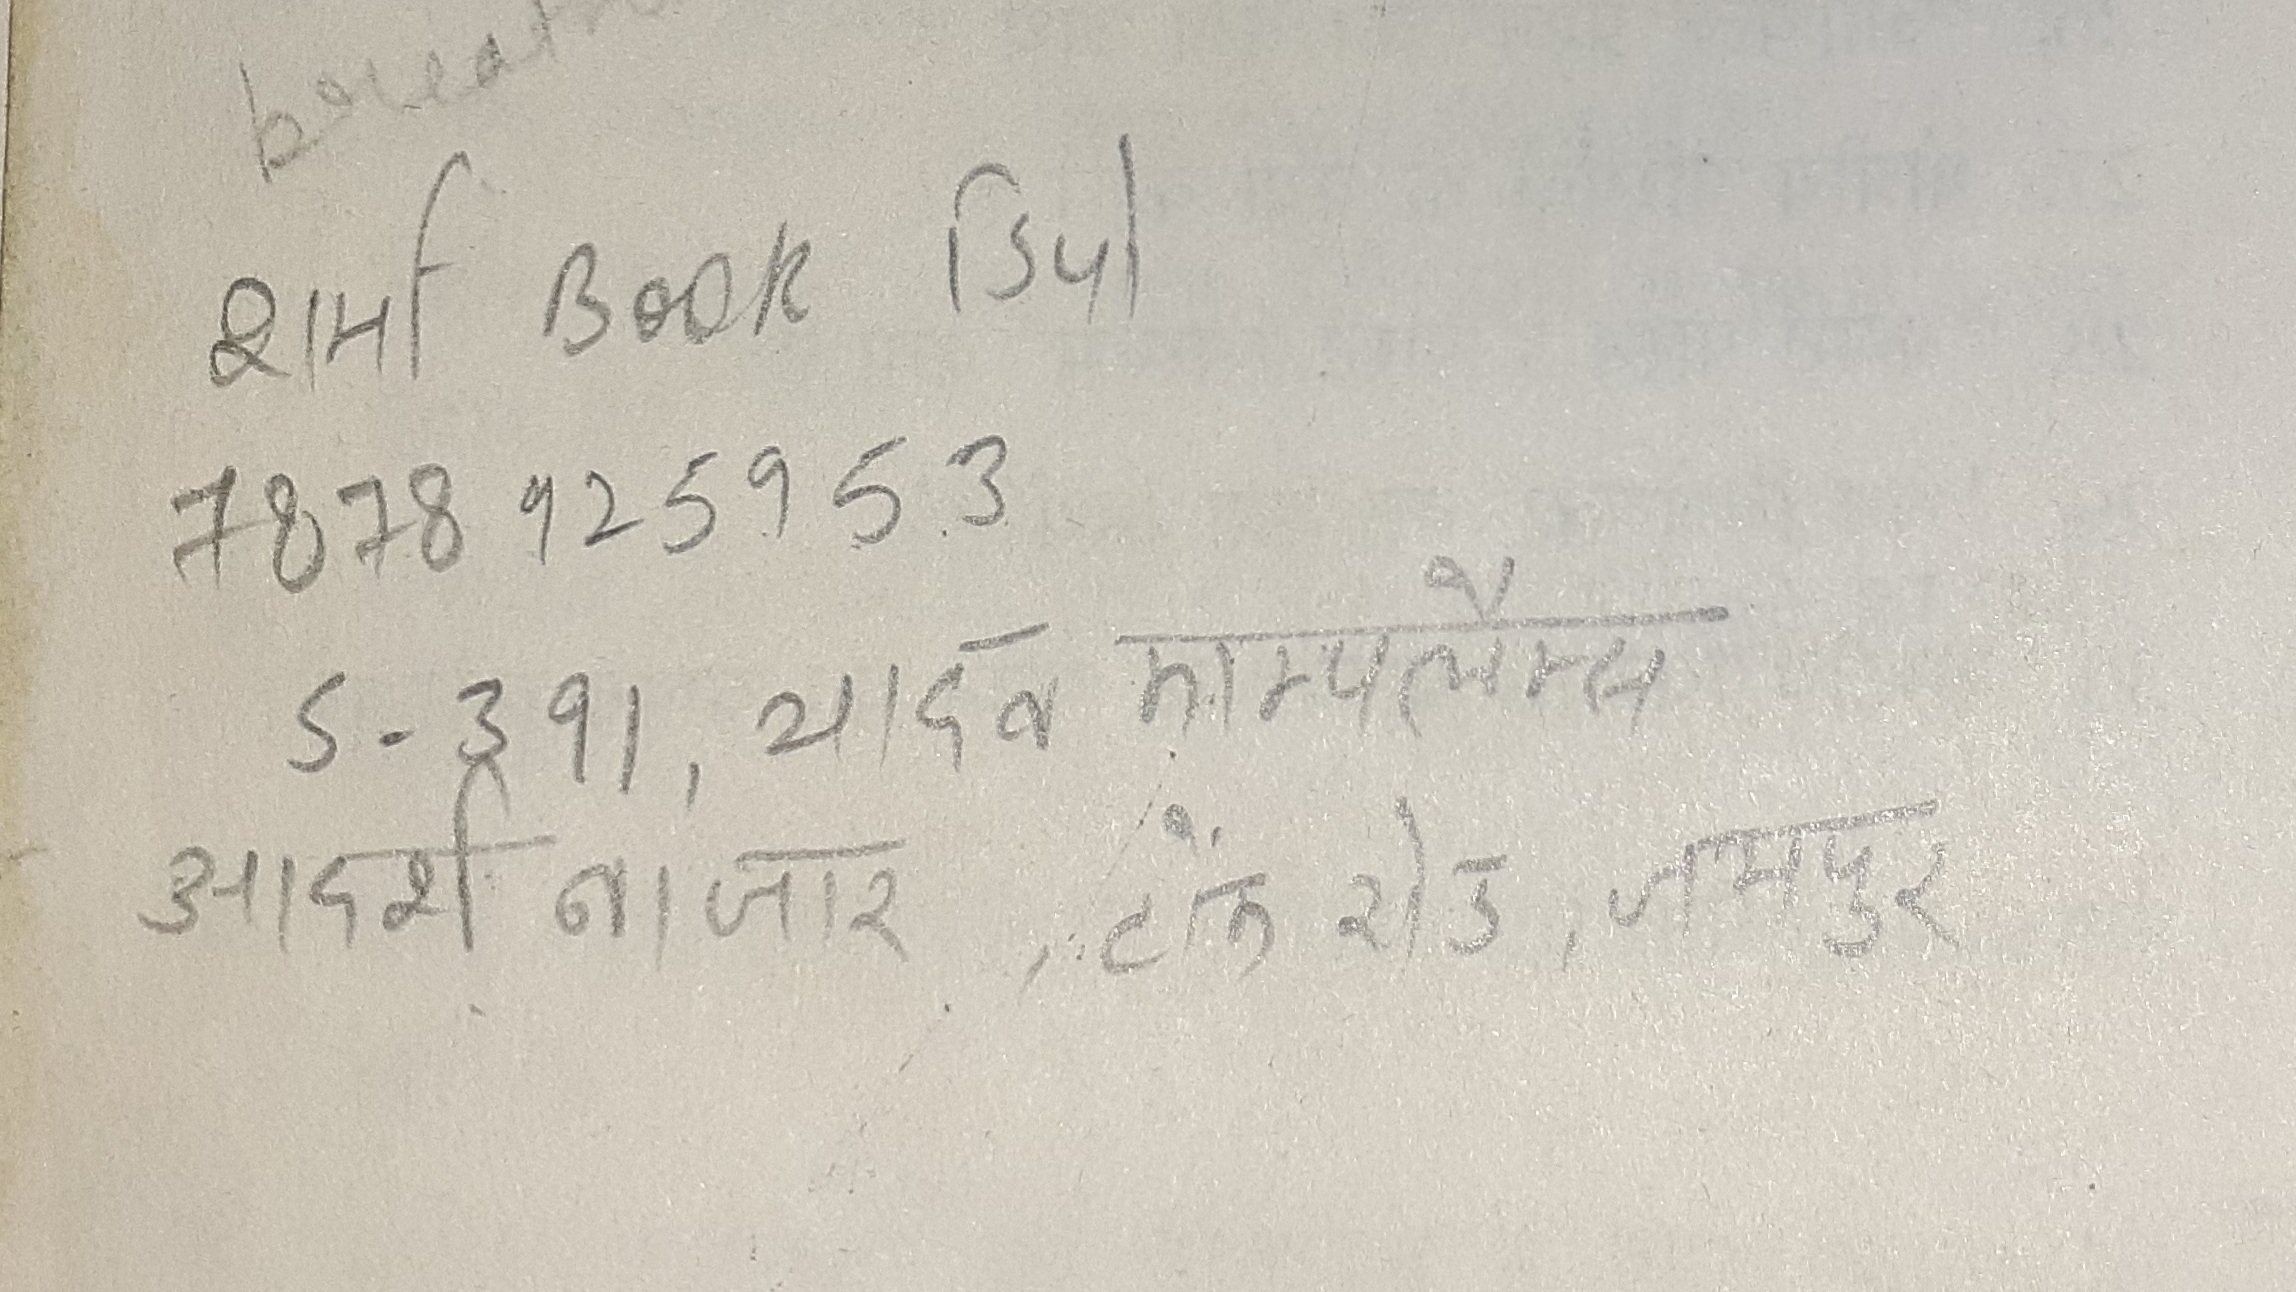 शर्मा Book डिपो
7878925953
S-391, यादव काम्पलैक्स
आदर्श बाजार, टोंक रोड, जयपुर